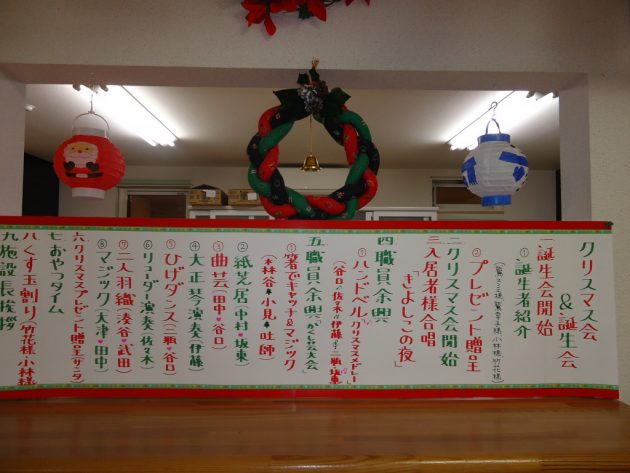 クリスマス会
&誕生会
一誕生会開始
①誕生者紹介
②プレゼント贈呈
二クリスマス会開始
三入居者様合唱
「きよしこの夜」
四職員余興
①ハンドベル(クリスマスメドレー)
(谷口・佐々木・伊藤・三瓶・坂東)
五職員余興(かくし芸大会)
①箸でキャッチ&マジック
(林谷・小見・吐師)
②紙芝居(中村・坂東)
③曲芸(田中・谷口)
④大正琴演奏(伊藤)
⑤ひげダンス(三瓶・谷口)
⑥リコーダー演奏(佐々木)
⑦二人羽織(湊谷・武田)
⑧マジック(大津・田中)
六クリスマスプレゼント贈呈(サンタ)
七おやつタイム
八くす玉割り(竹花様・小林様)
九施設長挨拶